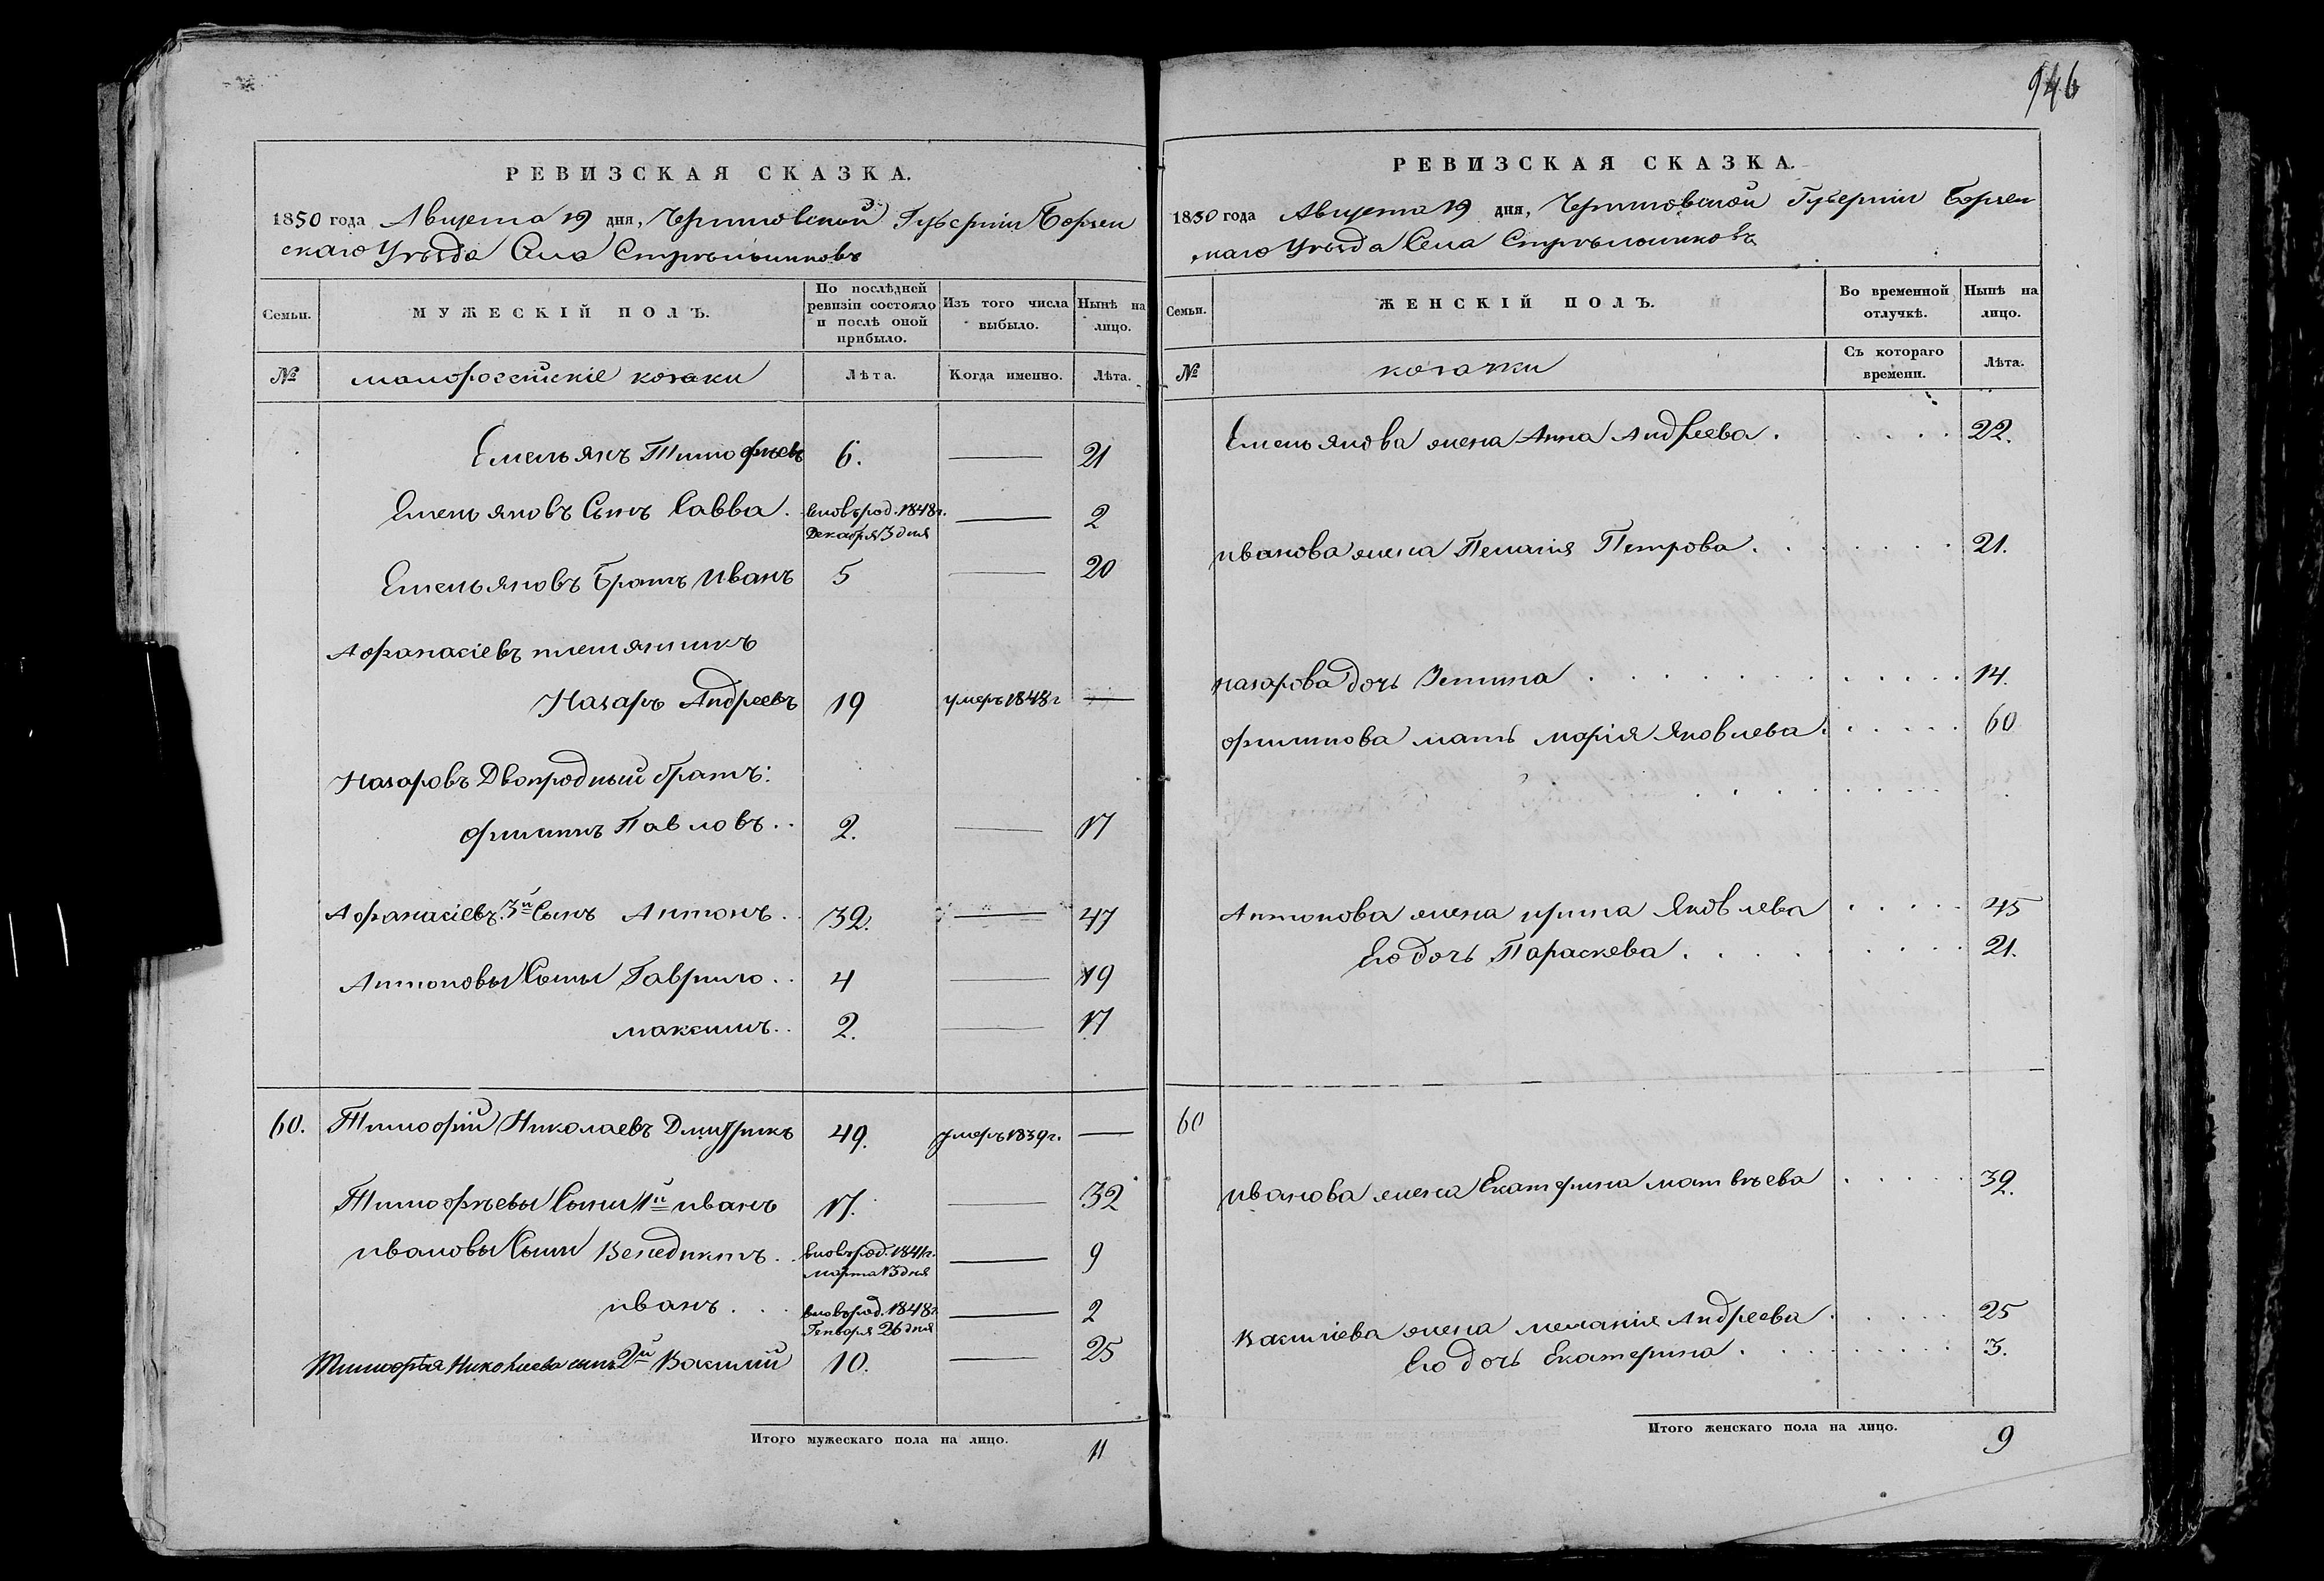 946
РЕВИЗСКАЯ СКАЗКА.
1850 года Августа 19 дня, Черниговской Губернии Борзен
скаго Уѣзда Села Стрѣльниковъ
Семьи.
МУЖЕСКІЙ ПОЛЪ.
По послѣдней ревизіи состояло и послѣ оной прибыло.
Изъ того числа выбыло.
Нынѣ на лицо.
№ малороссійскіе козаки Лѣта. Когда именно. Лѣта.
Емельянъ Тимофѣевъ 6. — 21
Емельяновъ Сынъ Савва . вновърод. 1848г. Декабря 3 дня — 2
Емельяновъ Братъ Иванъ 5 — 20
Афанасіевъ племянникъ
Назаръ Андреевъ 19 умеръ 1848г —
Назаровъ Двоюродный братъ:
Филипъ Павловъ . . 2. — 17
Афанасіевъ 3й Сынъ Антонъ . 32. — 47
Антоновы Сыны Гаврило . . 4 — 19
максимъ . . 2. — 17
60. Тимофій Николаевъ Дмитрикъ 49. умеръ 1839г. —
Тимофѣевы Сыны 1й иванъ 17. — 32
ивановы Сыны Венедиктъ . . вновърод. 1841г. марта 13 дня — 9
иванъ . . . вновърод. 1848г. Генваря 26 дня — 2
Тимофѣя Николаева сынъ 2й Василий 10. — 25
Итого мужескаго пола на лицо. 11
РЕВИЗСКАЯ СКАЗКА.
1850 года Августа 19 дня, Черниговской Губернии Борзен
скаго Уѣзда Села Стрѣльниковъ
Семьи.
ЖЕНСКІЙ ПОЛЪ.
Во временной отлучкѣ.
Нынѣ на лицо.
№ козачки Съ котораго времени. Лѣта.
Емельянова жена Анна Андреева . 22.
иванова жена Пелагія Петрова . 21.
назарова дочь 14.
филипова мать марія Яковлева . 60
Антонова жена ирина Яковлева 45
Его дочь Параскева . 21.
60
иванова жена Екатерина матвѣева 32.
Василіева жена меланія Андреева . 25
Его дочь Екатерина . 3.
Итого женскаго пола на лицо. 9